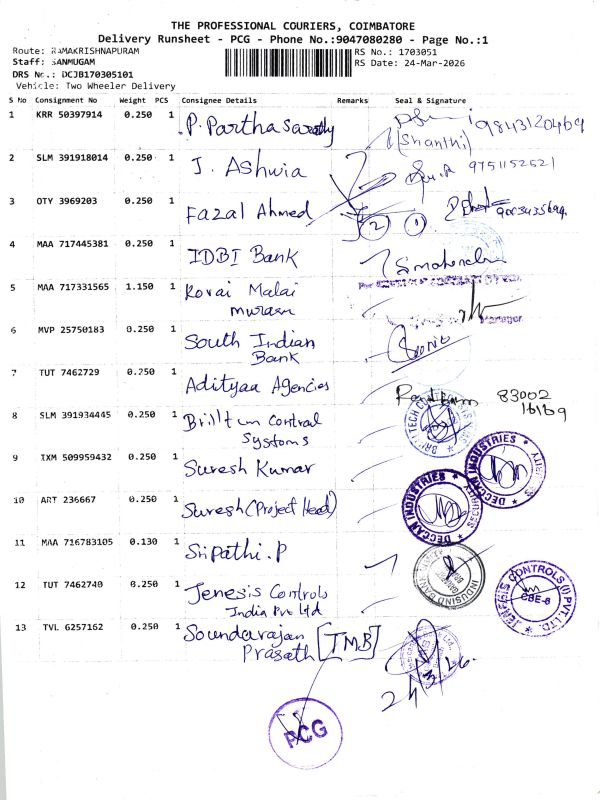 THE PROFESSIONAL COURIERS, COIMBATORE
Delivery Runsheet - PCG - Phone No.:9047080280 - Page No.:1
Route: RAMAKRISHNAPURAM
RS No.: 1703051
Staff: SANMUGAM
RS Date: 24-Mar-2026
DRS No.: DCJB170305101
Vehicle: Two Wheeler Delivery
S No Consignment No Weight PCS Consignee Details Remarks Seal & Signature
1 KRR 50397914 0.250 1 P. Parthasarathy 9843120469
(Shanthi)
2 SLM 391918014 0.250 1 J. Ashwia 9751152521
3 OTY 3969203 0.250 1 Fazal Ahmed 2 1
4 MAA 717445381 0.250 1 IDBI Bank
5 MAA 717331565 1.150 1 Kovai Malai
Murasu
Manager
6 MVP 25750183 0.250 1 South Indian
Bank
7 TUT 7462729 0.250 1 Adityaa Agencies
83002
16169
8 SLM 391934445 0.250 1 Brilltech Control
Systoms
9 IXM 509959432 0.250 1 Suresh Kumar
DECCAN INDUSTRIES
10 ART 236667 0.250 1 Suresh (Project Head)
DECCAN INDUSTRIES
11 MAA 716783105 0.130 1 Sripathi.P
INDUSIND BANK
12 TUT 7462740 0.250 1 Jenesis Controls
India Pvt Ltd
CONTROLS (I) PVT. LTD.
CBE-6
13 TVL 6257162 0.250 1 Soundarajan
Prasath [TMB]
24/3/26.
PCG